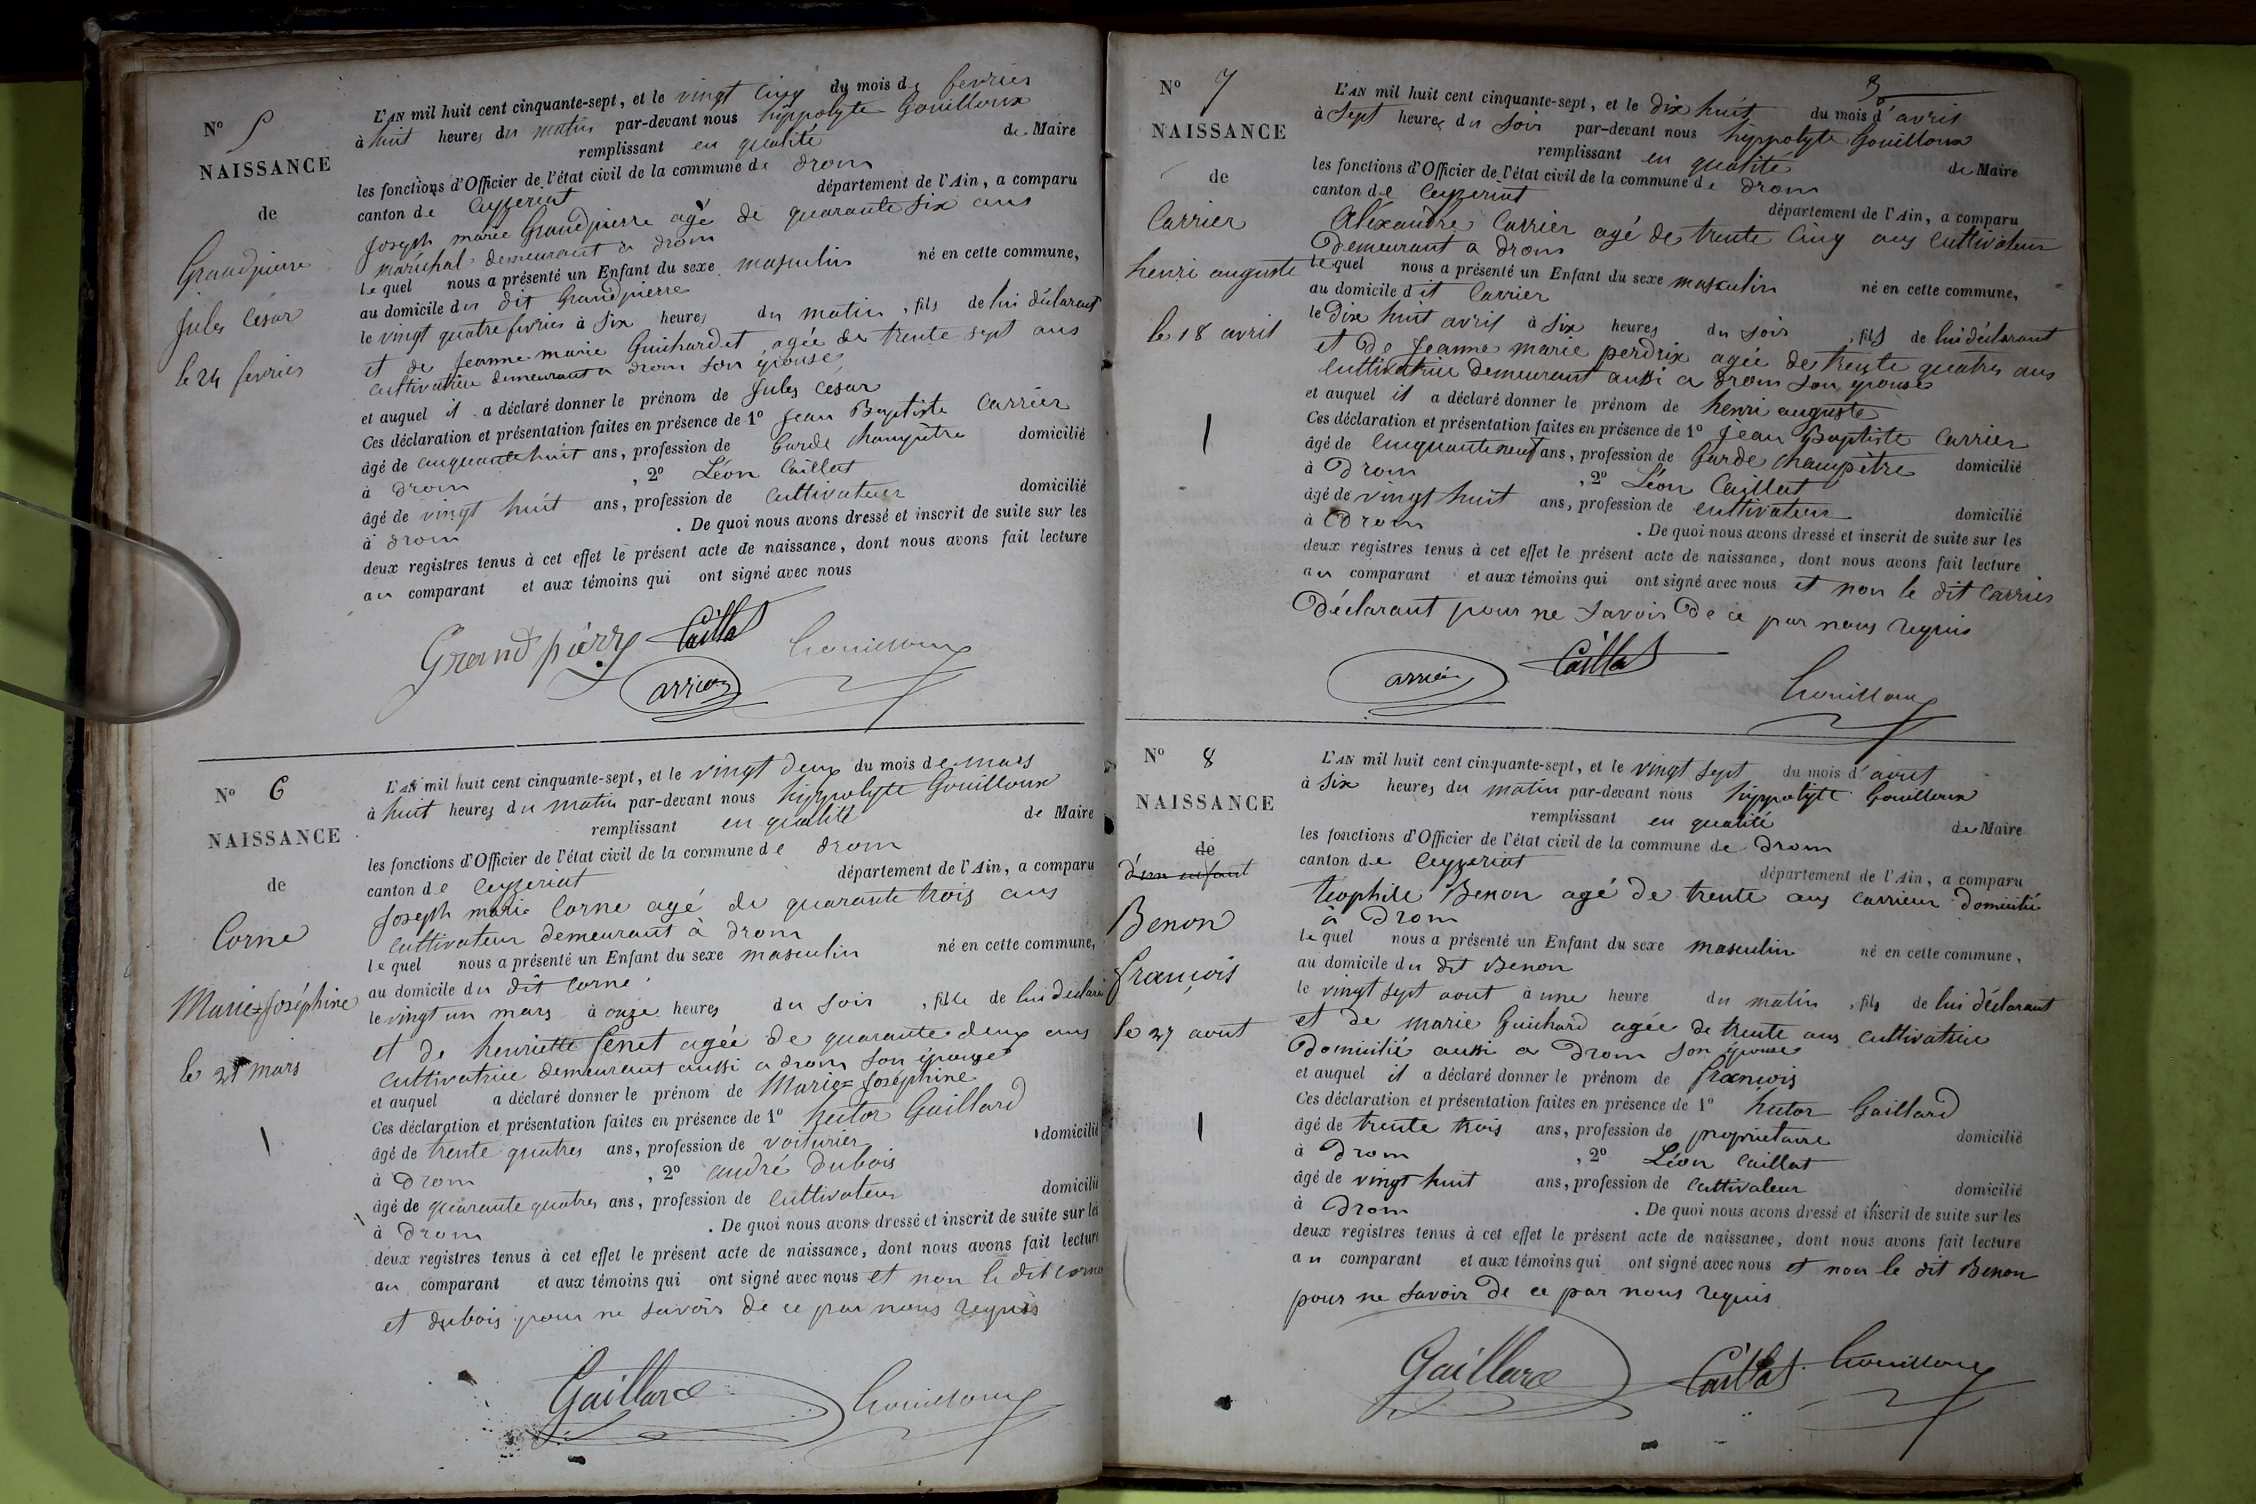 N° 5
NAISSANCE
de
Grandpierre
Jules César
le 24 fevrier
L'AN mil huit cent cinquante-sept, et le vingt cinq du mois de fevrier
à huit heures du matin par-devant nous hippolyte Gouilloux
remplissant en qualité de Maire
les fonctions d'Officier de l'état civil de la commune de drom
canton de Ceyzeriat département de l'Ain, a comparu
Joseph marie Grandpierre agé de quarante six ans
maréchal demeurant à drom
lequel nous a présenté un Enfant du sexe masculin né en cette commune,
au domicile du dit Grandpierre
le vingt quatre fevrier à six heures du matin, fils de lui déclarant
et de Jeanne marie Guichardet agée de trente sept ans
cultivatrice demeurant a drom son épouse
et auquel il a déclaré donner le prénom de Jules César
Ces déclaration et présentation faites en présence de 1° Jean Baptiste Carrier
âgé de cinquante huit ans, profession de Garde champêtre domicilié
à drom, 2° Léon Caillat
âgé de vingt huit ans, profession de cultivateur domicilié
à drom. De quoi nous avons dressé et inscrit de suite sur les
deux registres tenus à cet effet le présent acte de naissance, dont nous avons fait lecture
au comparant et aux témoins qui ont signé avec nous
Grandpierre Caillat Gouilloux
Carrier
N° 6
NAISSANCE
de
Corne
Marie=Joséphine
le 21 mars
L'AN mil huit cent cinquante-sept, et le vingt deux du mois de mars
à huit heures du matin par-devant nous hippolyte Gouilloux
remplissant en qualité de Maire
les fonctions d'Officier de l'état civil de la commune de drom
canton de Ceyzeriat département de l'Ain, a comparu
Joseph marie Corne agé de quarante trois ans
cultivateur demeurant à drom
lequel nous a présenté un Enfant du sexe masculin né en cette commune,
au domicile du dit Corne
le vingt un mars à onze heures du soir, fille de lui déclarant
et de henriette agée de quarante deux ans
cultivatrice demeurant aussi a drom son épouse
et auquel a déclaré donner le prénom de Marie=Joséphine
Ces déclaration et présentation faites en présence de 1° hector Gaillard
âgé de trente quatres ans, profession de voiturier domicilié
à Drom, 2° andré dubois
âgé de quarante quatres ans, profession de cultivateur domicilié
à Drom. De quoi nous avons dressé et inscrit de suite sur les
deux registres tenus à cet effet le présent acte de naissance, dont nous avons fait lecture
au comparant et aux témoins qui ont signé avec nous et non le dit corne
et dubois pour ne savoir de ce par nous requis
Gaillard Gouilloux
3
N° 7
NAISSANCE
de
Carrier
henri auguste
le 18 avril
L'AN mil huit cent cinquante-sept, et le dix huit du mois d'avril
à sept heures du soir par-devant nous hippolyte Gouilloux
remplissant en qualité de Maire
les fonctions d'Officier de l'état civil de la commune de drom
canton de Ceyzeriat département de l'Ain, a comparu
Alexandre Carrier agé de trente cinq ans cultivateur
Demeurant a drom
lequel nous a présenté un Enfant du sexe masculin né en cette commune,
au domicile dit Carrier
le dix huit avril à six heures du soir, fils de lui déclarant
et de Jeanne marie perdrix agée de trente quatres ans
cultivatrice demeurant aussi a drom son épouse
et auquel il a déclaré donner le prénom de henri auguste
Ces déclaration et présentation faites en présence de 1° Jean Baptiste Carrier
âgé de cinquante neuf ans, profession de Garde champêtre domicilié
à Drom, 2° Léon Caillat
âgé de vingt huit ans, profession de cultivateur domicilié
à Drom. De quoi nous avons dressé et inscrit de suite sur les
deux registres tenus à cet effet le présent acte de naissance, dont nous avons fait lecture
au comparant et aux témoins qui ont signé avec nous et non le dit Carrier
Déclarant pour ne savoir De ce par nous requis
Carrier Caillat Gouilloux
N° 8
NAISSANCE
de
d'un enfant
Benon
françois
le 27 aout
L'AN mil huit cent cinquante-sept, et le vingt sept du mois d'aout
à six heures du matin par-devant nous hippolyte Gouilloux
remplissant en qualité de Maire
les fonctions d'Officier de l'état civil de la commune de Drom
canton de Ceyzeriat département de l'Ain, a comparu
teophile Benon agé de trente ans carrieur domicilié
à Drom
lequel nous a présenté un Enfant du sexe masculin né en cette commune,
au domicile du dit Benon
le vingt sept aout à une heure du matin, fils de lui déclarant
et de marie Guichard agée de trente ans cultivatrice
Domicilié aussi a Drom son épouse
et auquel il a déclaré donner le prénom de françois
Ces déclaration et présentation faites en présence de 1° hector Gaillard
âgé de trente trois ans, profession de propriétaire domicilié
à Drom, 2° Léon Caillat
âgé de vingt huit ans, profession de cultivateur domicilié
à Drom. De quoi nous avons dressé et inscrit de suite sur les
deux registres tenus à cet effet le présent acte de naissance, dont nous avons fait lecture
au comparant et aux témoins qui ont signé avec nous et non le dit Benon
pour ne savoir De ce par nous requis
Gaillard Caillat Gouilloux